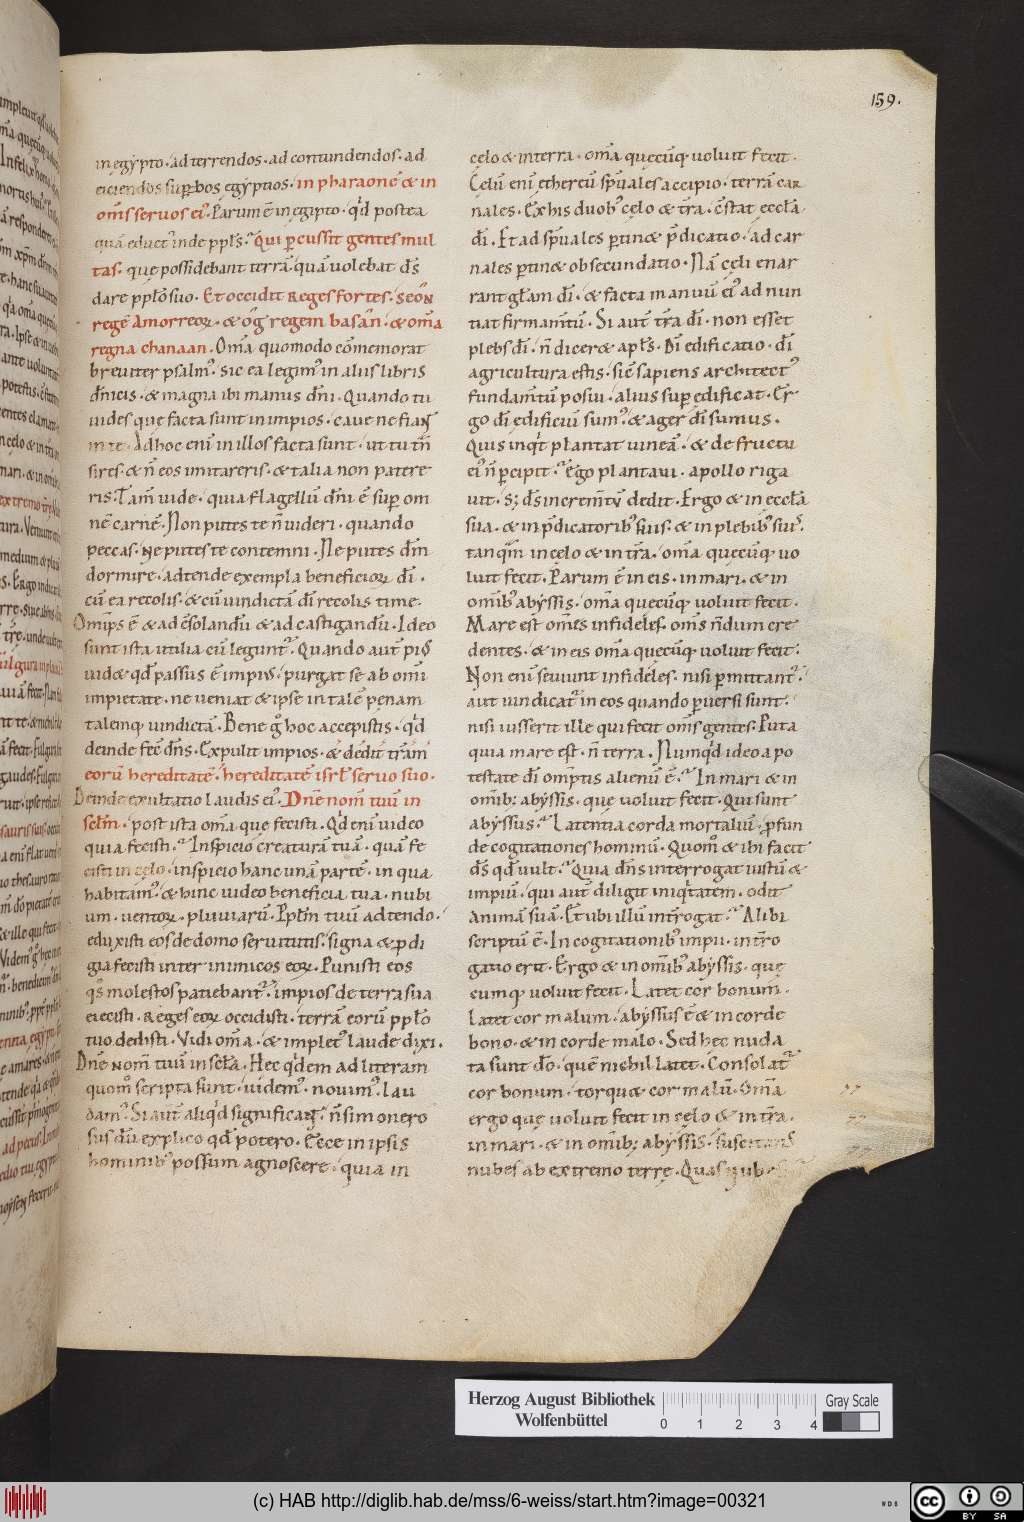 159.
in egypto · ad terrendos · ad contundendos · ad
eiciendos suꝑbos egyptios · in pharaonē & in
om̄s seruos ei᷒. Parum ē in egipto · qd̓ postea
quā educt᷒ inde ppl̄s. Qui ꝑcussit gentes mul
tas · que possidebant terrā quā uolebat d̄s
dare ppl̄o suo · Et occidit Reges fortes · seon
regē Amorreoꝝ · & og regem basan · & om̄a
regna chanaan. Om̄a quomodo cōmemorat
breuiter psalm᷒ · sic ea legim᷒ in aliis libris
dn̄icis · & magna ibi manus dn̄i · Quando tu
uides que facta sunt in impios · caue ne fiant
in te · Ad hoc eni᷒ in illos facta sunt · ut tu tn̄
sires · & n̄ eos imitareris · & talia non patere
ris. Tam̄ uide · quia flagellū dn̄i ē suꝑ om
nē carnē. Non putes te n̄ uideri · quando
peccas · ne putes te contemni · Ne putes dm̄
dormire · adtende exempla beneficioꝝ di̅ ·
cū ea recolis · & cū uindictā di̅ recolis time.
Omip̄s ē & ad c̄solandū & ad castigandū. Ideo
sunt ista utilia cū legunt᷑. Quando aut̄ pi᷒
uid& qd̓ passus ē impi᷒ · purgat se ab omi̅
impietate · ne ueniat & ipse in talē penam
talemq; uindictā. Bene g̊ hoc accepistis · qd̓
deinde fec̄ dn̄s. Expulit impios · & dedit trām
eorū hereditatē · hereditatē isrl̄ seruo suo ·
Deinde exultatio laudis ei᷒. Dn̄e nom̄ tuū in
sclm̄ · post ista om̄a que fecisti. Qd̓ enī uideo
quia fecisti. Inspicio creaturā tuā · quā fe
cisti in cęlo · inspicio hanc unā partē · in qua
habitam᷒ · & hinc uideo beneficia tua · nubi
um · uentoꝝ · pluuiarū. Ppl̄m tuū adtendo ·
eduxisti eos de domo seruitutis · signa & ꝓdi
gia fecisti inter inimicos eoꝝ. Punisti eos
qs̊ molestos patiebant᷑ · impios de terra sua
eiecisti · Reges eoꝝ occidisti · terrā eorū ppl̄o
tuo dedisti. Vidi om̄a · & implet᷒ laude dixi.
Dn̄e nom̄ tuū in sclā. Hec qd̓em ad literam
quom̊ scripta sunt · uidem᷒ · nouim᷒ · lau
dam᷒. Si aut̄ aliqd̓ significant · n̄ sim onero
sus dū explico qd̓ potero. Ecce in ipsis
hominib᷒ possum agnoscere · quia in
cęlo & in terra · om̄a quecūq; uoluit fecit.
Celū enī ethereū sp̄uales accipio · terrā car
nales. Ex his duob᷒ cęlo & trā · c̄stat eccłā
di̅. Et ad sp̄uales ꝑtin& p̄dicatio · ad car
nales ꝑtin& obsecundatio. Nā cęli enar
rant głam di̅ · & facta manuū ei᷒ ad nun
tiat firmamtū. Si aut̄ trā di̅ · non esset
plebs di̅ · n̄ dicer& apl̄s. Di̅ edificatio · di̅
agricultura estis · sic̄ sapiens architect᷒
fundamtū posui · alius suꝑ edificat. Er
go di̅ edificiū sum᷒ · & ager di̅ sumus.
Quis inqt̓ plantat uineā · & de fructu
ei᷒ n̄ ꝑcipit. Ego plantaui · apollo riga
uit · s; d̄s incremtū dedit. Ergo & in eccłā
sua · & in p̄dicatorib᷒ suis · & in plebib᷒ suis ·
tanqm̄ in cęlo & in trā · om̄a quecūq; uo
luit fecit. Parum ē in eis · in mari · & in
omib᷒ abyssis · om̄a quecūq; uoluit fecit.
Mare est om̄es infideles · om̄s n̄dum cre
dentes · & in eis om̄a quecūq; uoluit fecit.
Non enī seuiunt infideles · nisi ꝑmittant᷑ ·
aut uindicat᷑ in eos quando ꝑuersi sunt ·
nisi iusserit ille qui fecit om̄s gentes. Puta
quia mare est · n̄ terra. Nunqd̓ ideo a po
testate di̅ omp̄tis alienū ē. In mari & in
omib; abyssis · que uoluit fecit. Qui sunt
abyssus. Latentia corda mortaliū · ꝓfun
de cogitationes hominū. Quom̊ & ibi facit
d̄s qd̓ uult. Quia dn̄s interrogat iustū &
impiū · qui aut̄ diligit iniqtatem · odit
animā suā. Et ubi illū int̄rogat. Alibi
scriptū ē. In cogitationib᷒ impii · int̄ro
gatio erit. Ergo & in omib᷒ abyssis · que
cumq; uoluit fecit. Latet cor bonum ·
latet cor malum · abyssus ē & in corde
bono · & in corde malo. Sed hec nuda
ta sunt do̅ · quē nichil latet. Consolat᷑
cor bonum · torqu& cor malū. Om̄a
ergo que uoluit fecit in cęlo & in trā ·
in mari · & in omib; abyssis ·
nubes ab extremo terrę. Quas nub
Herzog August Bibliothek
Wolfenbüttel
0 1 2 3 4
Gray Scale
(c) HAB http://diglib.hab.de/mss/6-weiss/start.htm?image=00321
cc BY SA